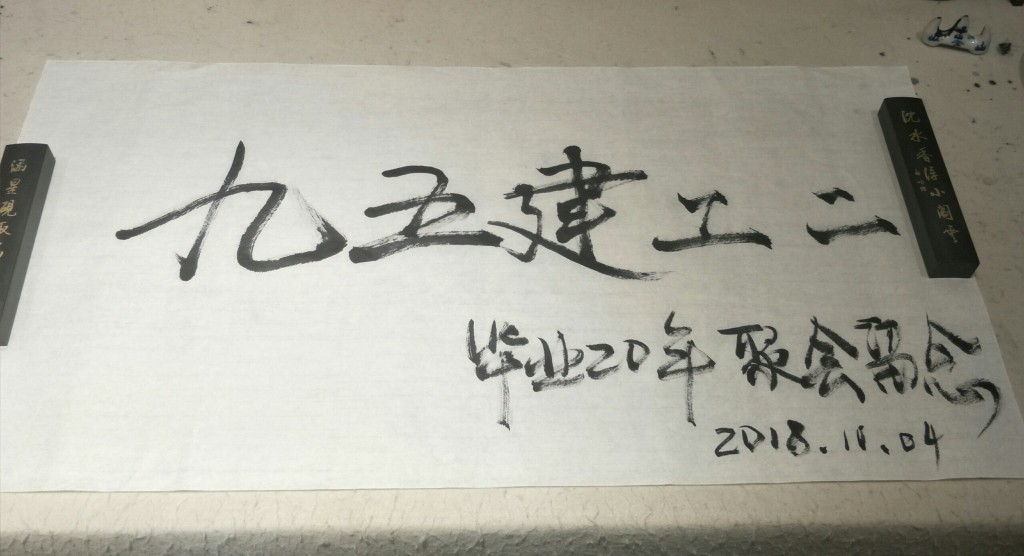 九五建工二
毕业20年聚会留念
2018.11.04
沈水香侵小阁云